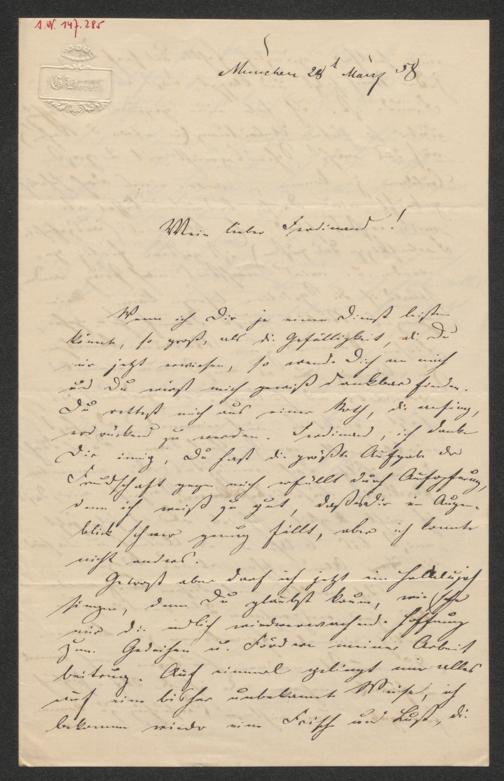 I.N. 147.285
München 28t März 58
Mein lieber Ferdinand!
Wenn ich Dir je einen Dienst leisten
könnte, so groß, als die Gefälligkeit, die Du
mir jetzt erwiesen, so wende Dich an mich
und Du wirst mich gewiß dankbar finden.
Du rettest mich aus einer Noth, die anfing,
erdrückend zu werden. Ferdinand, ich danke
Dir innig, Du hast die größte Aufgabe der
Freundschaft gegen mich erfüllt durch Aufopferung,
denn ich weiß zu gut, daß es Dir im Augen-
blick schwer genug fällt, aber ich konnte
nicht anders.
Getrost aber darf ich jetzt ein Hallelujah
singen, denn Du glaubst kaum, wie sehr
mir die endlich wiedererwachende Hoffnung
zum Gedeihen u. Fördern meiner Arbeit
beitrug. Auf einmal gelingt mir alles
auf eine bisher unbekannte Weise, ich
bekomme wieder eine Frische und Lust, die